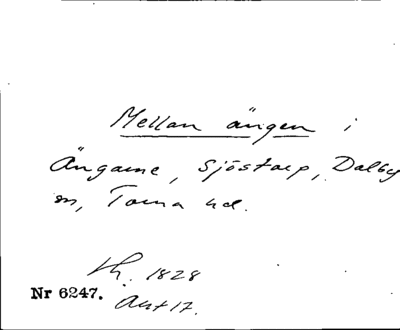 Mellan ängen i
Ängarne, Sjöstorp, Dalby
sn, Torna hd.
Lh. 1828
Nr 6247. Akt 17.